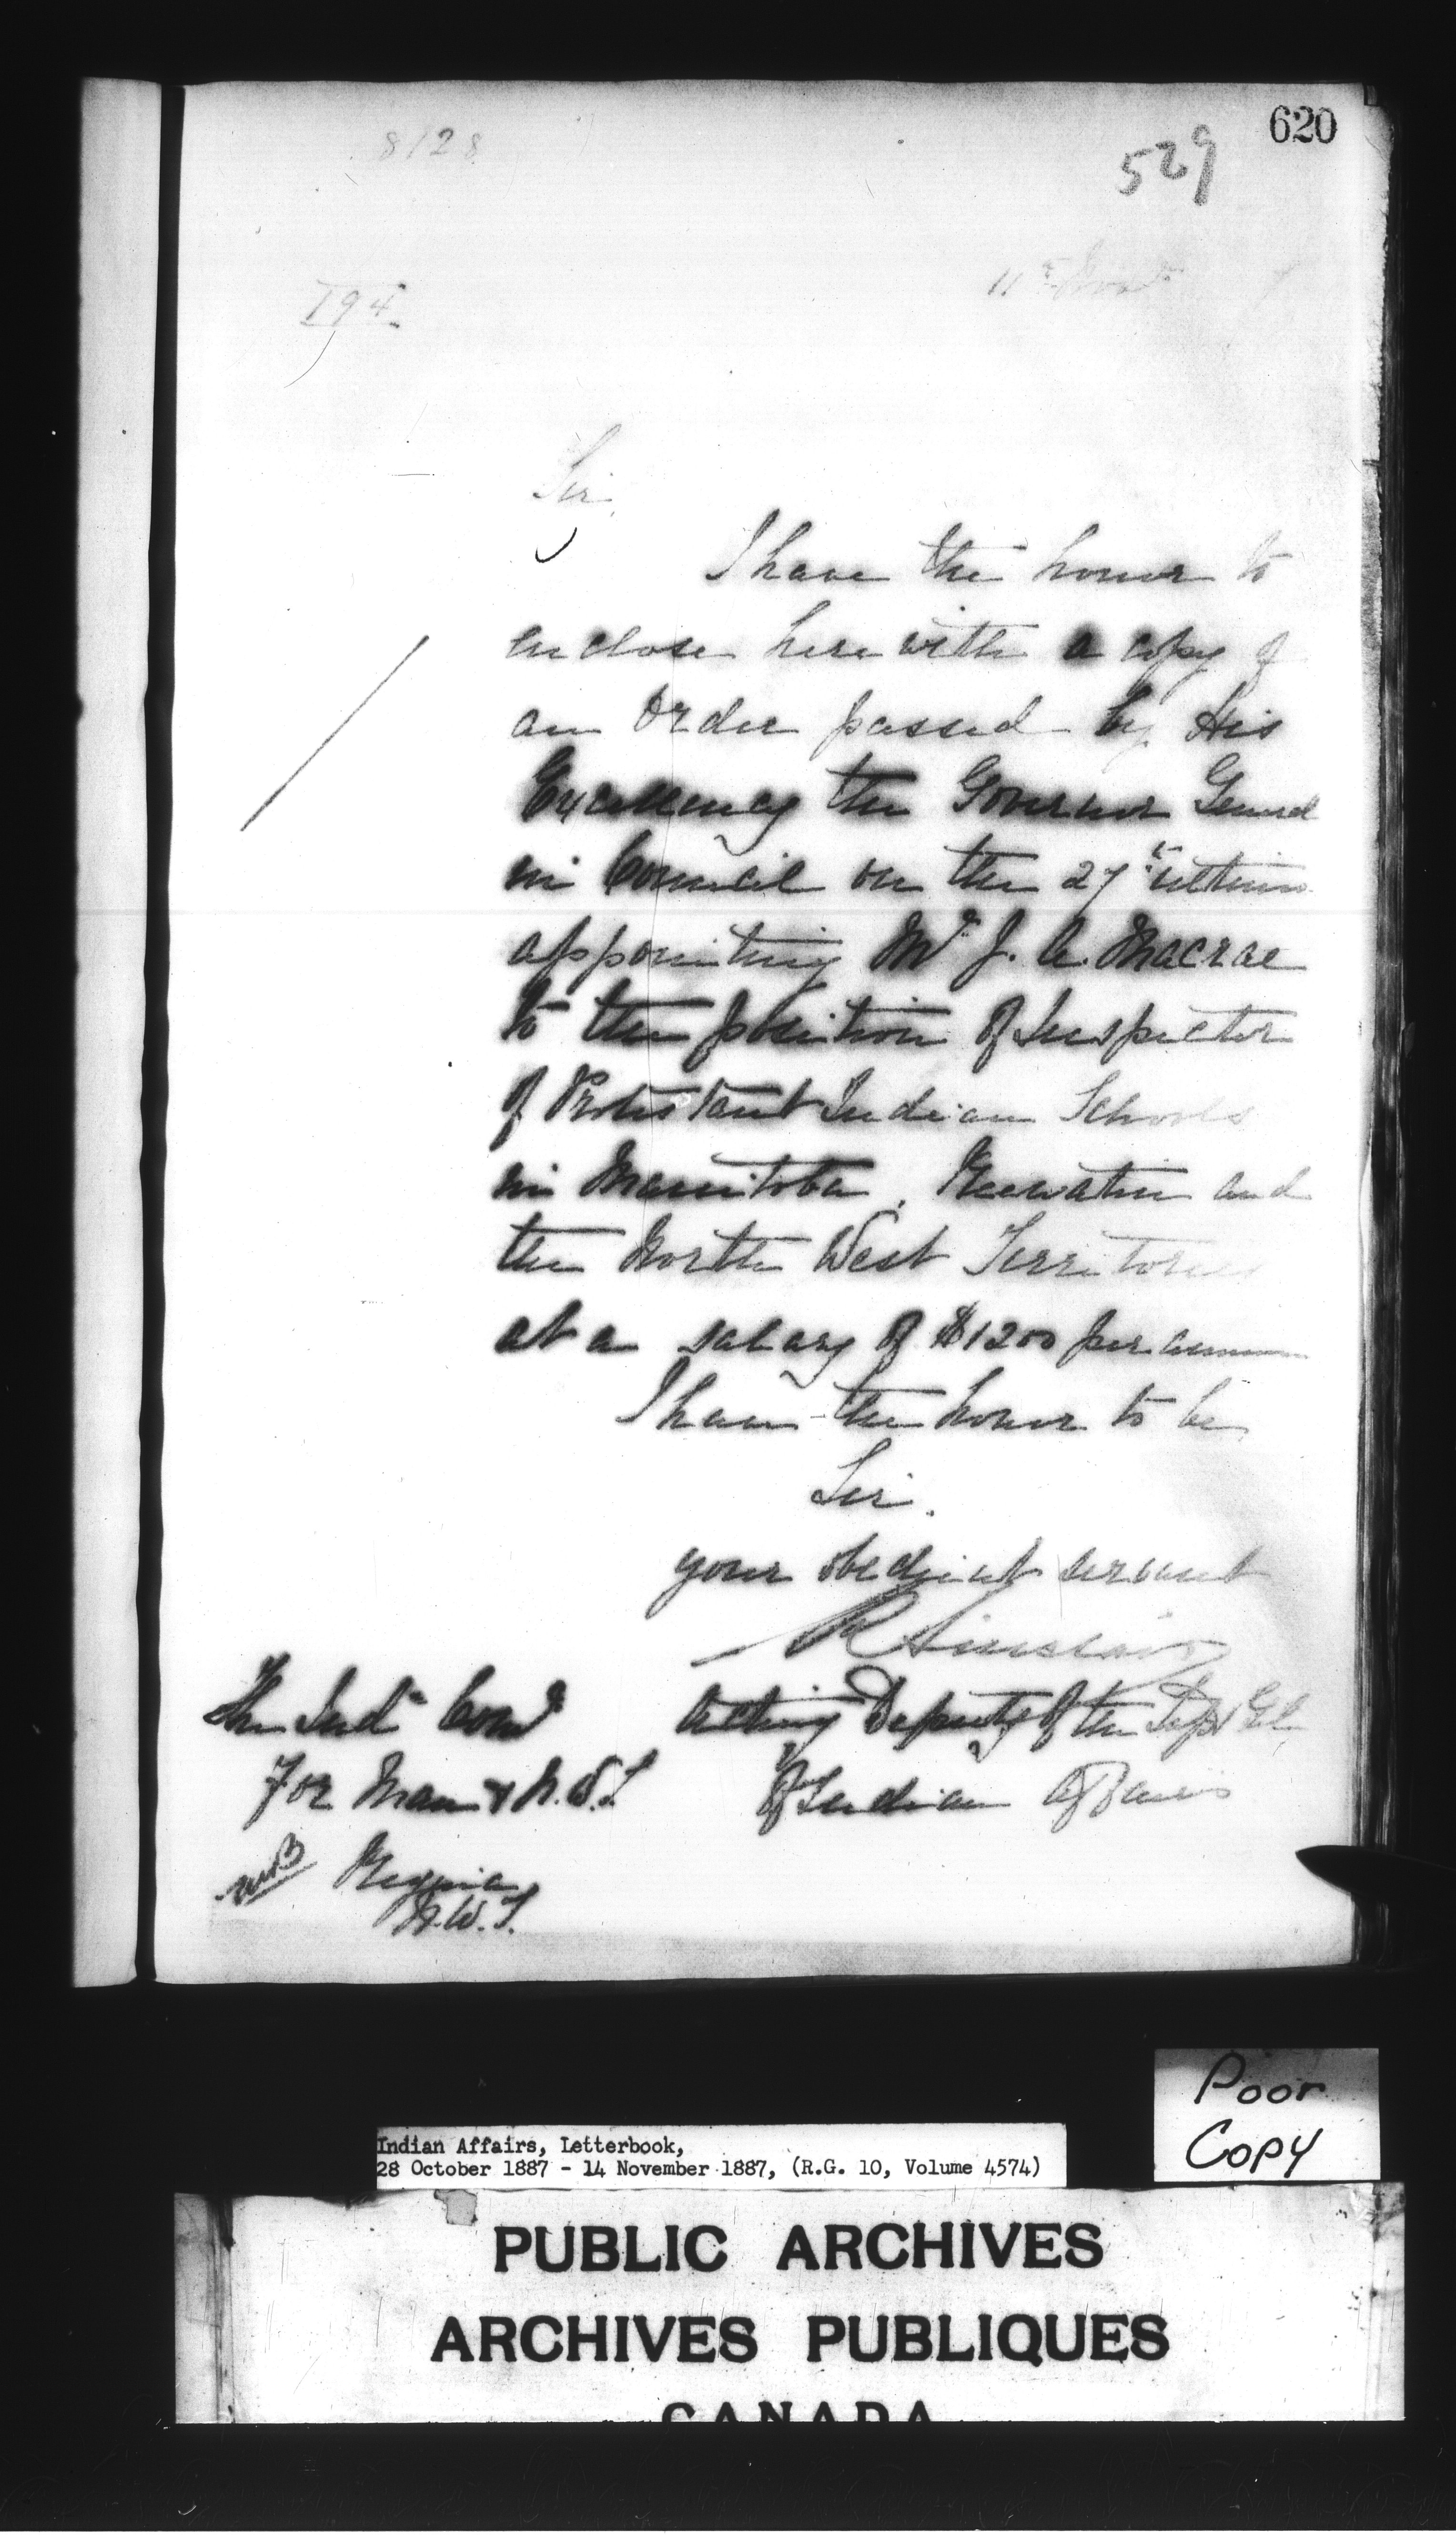 620
529
8128
11th Novr
194
Sir,
I have the honor to
enclose herewith a copy of
an Order passed by His
Excellency the Governor General
in Council on the 27th ultimo
appointing Mr J. A. Macrae
to the position of Inspector
of Protestant Indian Schools
in Manitoba, Keewatin and
the North West Territories
at a salary of $1200 per annum
I have the honor to be
Sir.
your obedient servant
R Sinclair
Acting Deputy of the Supt Gl
of Indian Affairs
The Indn Comr
For Man & N.W.T
Regina
N.W.T.
Poor
Copy
Indian Affairs, Letterbook,
28 October 1887 - 14 November 1887, (R.G. 10, Volume 4574)
PUBLIC ARCHIVES
ARCHIVES PUBLIQUES
CANADA